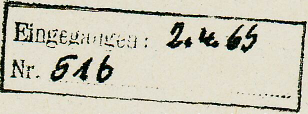 Eingegangen: 2.4.65
Nr. 516